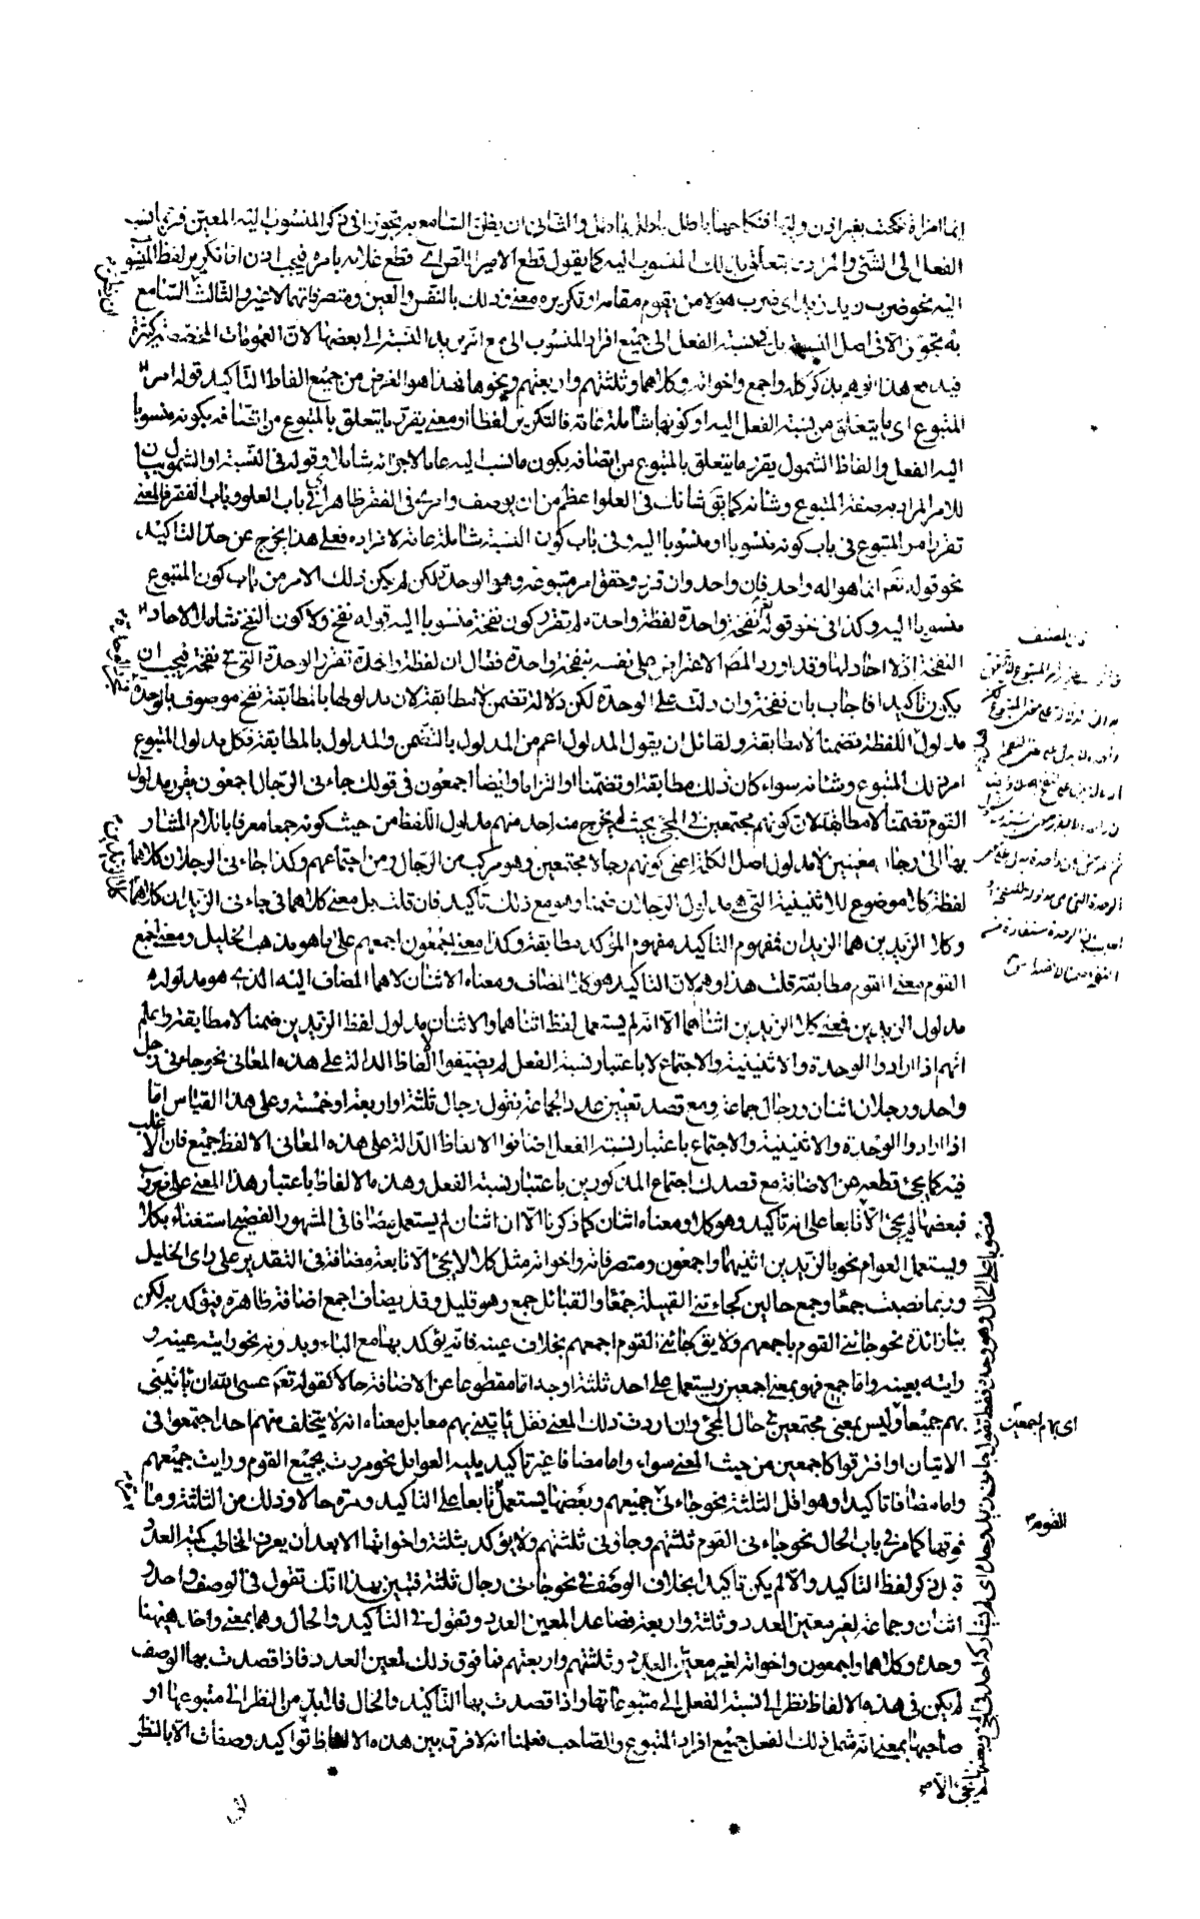 ايما امرأة نكحت بغير اذن وليها فنكاحها باطل باطل باطل والثانى ان يظن السامع به تجوزا فى ذكر المنسوب اليه المعين فربما نسب
الفعل الى الشئ والمراد ما يتعلق بذلك المنسوب اليه كما يقول قطع الامير اللص اى قطع غلامه بامره فيجب اذن اما تكرير لفظ المنسوب
اليه نحو ضرب زيد زيد اى ضرب هو لا من يقوم مقامه او تكريره معنى وذلك بالنفس والعين ومتصرفاتهما لا غير والثالث ان يظن السامع
به تجوزا لا فى اصل النسبة بل فى نسبة الفعل الى جميع افراد المنسوب اليه مع انه يريد النسبة الى بعضها لان العمومات المخصصة كثيرة
فيدفع هذا الوهم بذكر كله واجمع واخواته وكلاهما وثلثتهم واربعتهم ونحوها فهذا هو الغرض من جميع الفاظ التأكيد قوله امر
المتبوع اى ما يتعلق من نسبة الفعل اليه او كونها شاملة عامة فالتكرير لفظا او معنى يقرر ما يتعلق بالمتبوع من اتصافه بكونه منسوبا
اليه الفعل والفاظ الشمول يقرر ما يتعلق بالمتبوع من اتصافه بكون ما نسب اليه عاما لاجزائه شاملا وقوله فى النسبة او الشمول بيان
للامر المراد به صفة المتبوع وشأنه كما يقال شانك فى العلو اعظم من ان يوصف وامرى فى الفقر ظاهر اى فى باب العلو وباب الفقر فالمعنى
تقرر امر المتبوع فى باب كونه منسوبا او منسوبا اليه وفى باب كون النسبة شاملة عامة لافراده فعلى هذا يخرج عن حد التاكيد
نحو قوله تعم انما هو اله واحد فان واحد وان قرر وحقق امر متبوعه وهو الوحدة لكن لم يكن ذلك الامر من باب كون المتبوع
منسوبا اليه وكذا فى نحو قوله نفخة واحدة لفظة واحدة لم تقرر كون نفخة منسوبا اليه قوله نفخ ولا كون النفخ شاملا لاحاد
النفخة اذ لا احاد لها وقد اورد المصنف الاعتراض على نفسه بنفخة واحدة فقال ان لفظة واحدة تقرر الوحدة التى فى نفخة فيجب ان
يكون تأكيدا فاجاب بان نفخة وان دلت على الوحدة لكن دلالة تضمن لا مطابقة لان مدلولها بالمطابقة نفخ موصوف بالوحدة
مدلول اللفظة تضمنا لا مطابقة ولقائل ان يقول المدلول اعم من المدلول بالتضمن والمدلول بالمطابقة فكل مدلول المتبوع
امر ذلك المتبوع وشأنه سواء كان ذلك مطابقة او تضمنا او التزاما وايضا اجمعون فى قولك جاءنى الرجال اجمعون يقرر مدلول
القوم تضمنا لا مطابقة لان كونهم مجتمعين فى المجئ بحيث لم يخرج منه احد منهم مدلول اللفظ من حيث كونه جمعا معرفا باللام المشار
بها الى رجال معينين لا مدلول اصل الكلمة اعنى كونهم رجالا مجتمعين وهو مركب من الرجال ومن اجتماعهم وكذا جاءنى الرجلان كلاهما
لفظة كلا موضوع للاثنينية التى هى مدلول الرجلان ضمنا وهو مع ذلك تأكيد فان قلت بل معنى كلاهما فى جاءنى الزيدان كلاهما
وكلا الزيدين هما الزيدان فمفهوم التاكيد مفهوم المؤكد مطابقة وكذا معنى اجمعون اجمعهم على ما هو مذهب الخليل ومعنى اجمع
القوم معنى القوم مطابقة قلت هذا وهم لان التاكيد هو كلا المضاف ومعناه الاثنان لا هما المضاف اليه الذى هو مدلوله
مدلول الزيدين فمعنى كلا الزيدين اثناهما الا انه لم يستعمل لفظ اثناهما والاثنان مدلول لفظ الزيدين ضمنا لا مطابقة واعلم
انهم اذا ارادوا الوحدة والاثنينية والاجتماع لا باعتبار نسبة الفعل لم يضيفوا الفاظ الدالة على هذه المعانى نحو جاءنى رجل
واحد ورجلان اثنان ورجال جماعة ومع قصد تعيين عدد الجماعة يقول رجال ثلثة او اربعة او خمسة وعلى هذا القياس اما
اذا ارادوا الوحدة والاثنينية والاجتماع باعتبار نسبة الفعل اضافوا الالفاظ الدالة على هذه المعانى الا لفظ جميع فان الاغلب
فيه كما يجئ قطعه عن الاضافة مع قصدك اجتماع المذكورين باعتبار نسبة الفعل وهذه الالفاظ باعتبار هذا المعنى على ضربين
فبعضها لم يجئ الا تابعا على انه تأكيد وهو كلا ومعناه اثنان كما ذكرنا الا ان اثنان لم يستعمل مضافا فى المشهور الفصيح استغناء بكلا
ويستعمل العوام نحو بالزيدين اثنيهما واجمعون ومتصرفاته واخواته مثل كلا لا يجئ الا تابعة مضافة فى التقدير على راى الخليل
وربما نصبت جمعا وجمع حالين كجاءتنى القبيلة جمعا والقبائل جمع وهو قليل وقد يضاف اجمع اضافة ظاهرة فيؤكد به لكن
بباء زائدة نحو جاءنى القوم باجمعهم ولا يقال جاءنى القوم اجمعهم بخلاف عينه فانه يؤكد بها مع الباء وبدونه نحو رايته عينه و
رايته بعينه واما جميع فهو بمعنى اجمعين ويستعمل على احد ثلثة اوجه اما مقطوعا عن الاضافة حالا كقوله تعم عسى الله ان ياتينى
بهم جميعا وليس بمعنى مجتمعين فى حال المجئ وان اردت ذلك المعنى فقل ياتينى بهم معا بل معناه انه لا يتخلف منهم احد اجتمعوا فى
الاتيان او افترقوا كاجمعين من حيث المعنى سواء واما مضافا غير تأكيد يليه العوامل نحو مررت بجميع القوم ورايت جميعهم
واما مضافا تاكيدا وهو اقل الثلثة نحو جاءنى جميعهم وبعضها يستعمل تابعا على التاكيد ومرة حالا وذلك من الثلثة وما
فوقها كما مر فى باب الحال نحو جاءنى القوم ثلثتهم وجاؤنى ثلثتهم ولا يؤكد بثلثة واخواتها الا بعد ان يعرف المخاطب كمية العدد
قبل ذكر لفظ التاكيد والا لم يكن تاكيدا بخلاف الوصف فى نحو جاءنى رجال ثلثة فتبين بهذا انك تقول فى الوصف واحد و
اثنان وجماعة لغير معين العدد وثلثة واربعة فصاعدا لمعين العدد وتقول فى التأكيد والحال وهما بمعنى واحد ههنا
وحده وكلاهما واجمعون واخواته لغير معين العدد وثلثتهم واربعتهم فما فوق ذلك لمعين العدد فاذا قصدت بها الوصف
لم يكن فى هذه الالفاظ نظر الى نسبة الفعل الى متبوعاتها واذا قصدت بها التأكيد والحال فلا بد من النظر الى متبوعها او
صاحبها بمعنى انه شمل ذلك الفعل جميع افراد المتبوع والصاحب فعلمنا انه لا فرق بين هذه الالفاظ تواكيد وصفات الا بالنظر
اى بهم اجمعين
القوم
منصوبا على الحال وهو وحده فقط تقول جاءنى زيد وحده اى لم يشاركه احد فى المجئ وبعضها
لم يجئ الا